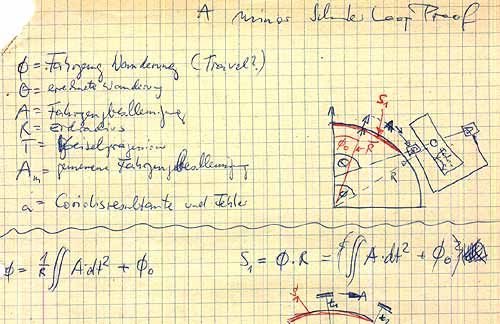 A minor Schuler Loop Proof
Φ = Fahrzeug Wanderung (Travel?)
Θ = errechnete Wanderung
A = Fahrzeugbeschleunigung
R = Erdradius
T =
Am = gemessene Fahrzeugbeschleunigung
a = Coriolisresultante und Fehler
S1
A
Φ0
R
Θ
Φ
R
Φ = 1/R ∬ A·dt² + Φ0
S1 = Φ·R = {∬ A·dt² + Φ0}
S1
t1
A